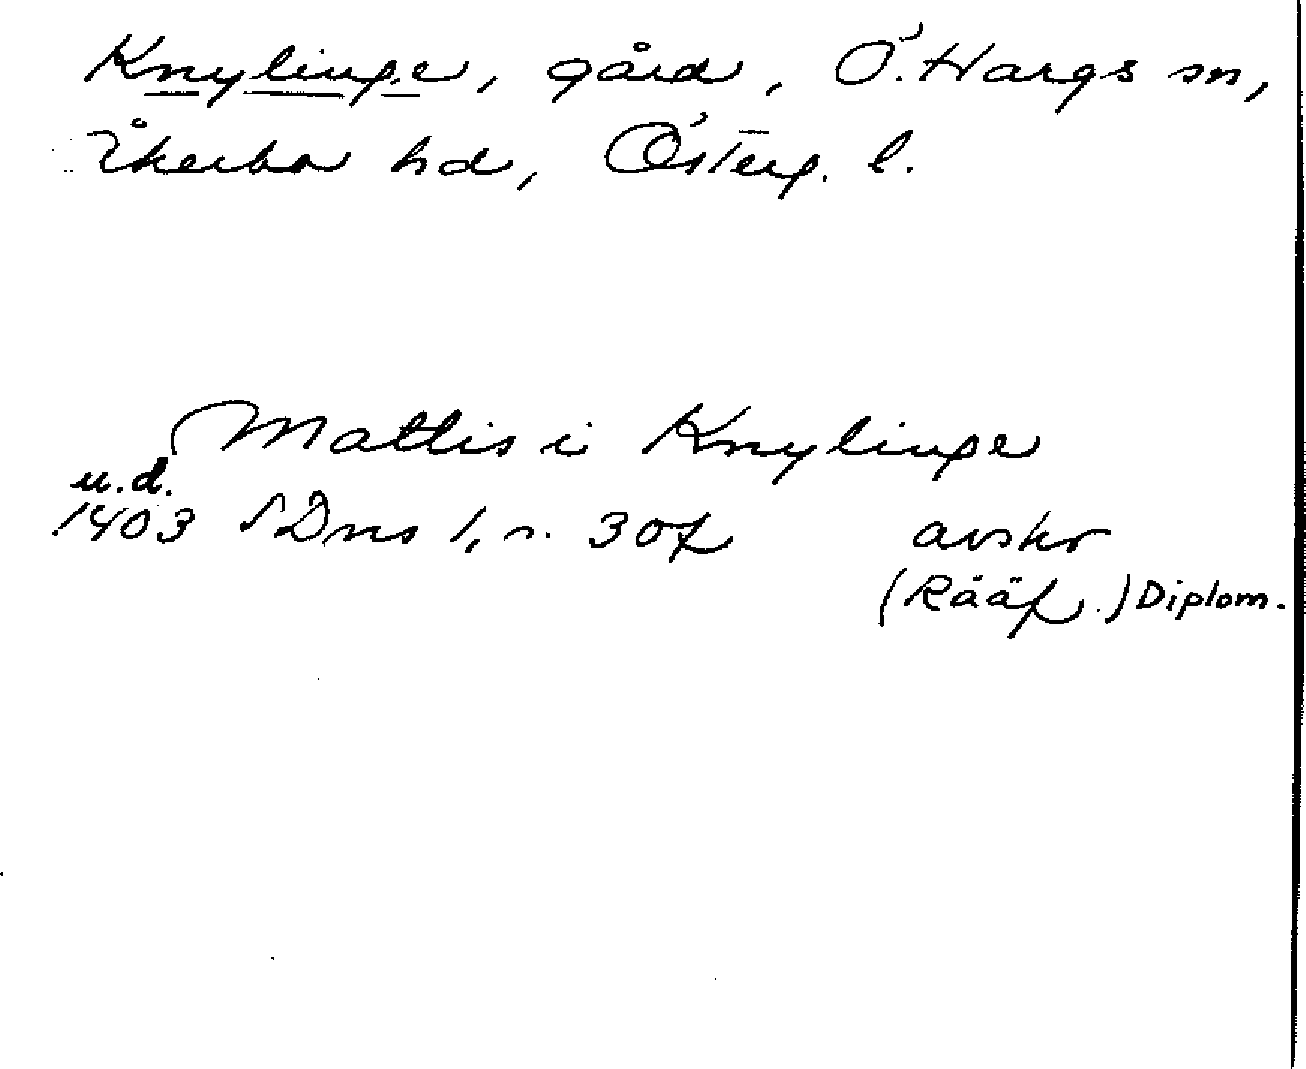 Knylinge, gård, Ö. Hargs sn,
Åkerbo hd, Österg. l.
Mattis i Knylinge
u.d.
1403 SDns 1, s. 307 avskr
(Rääf.) Diplom.